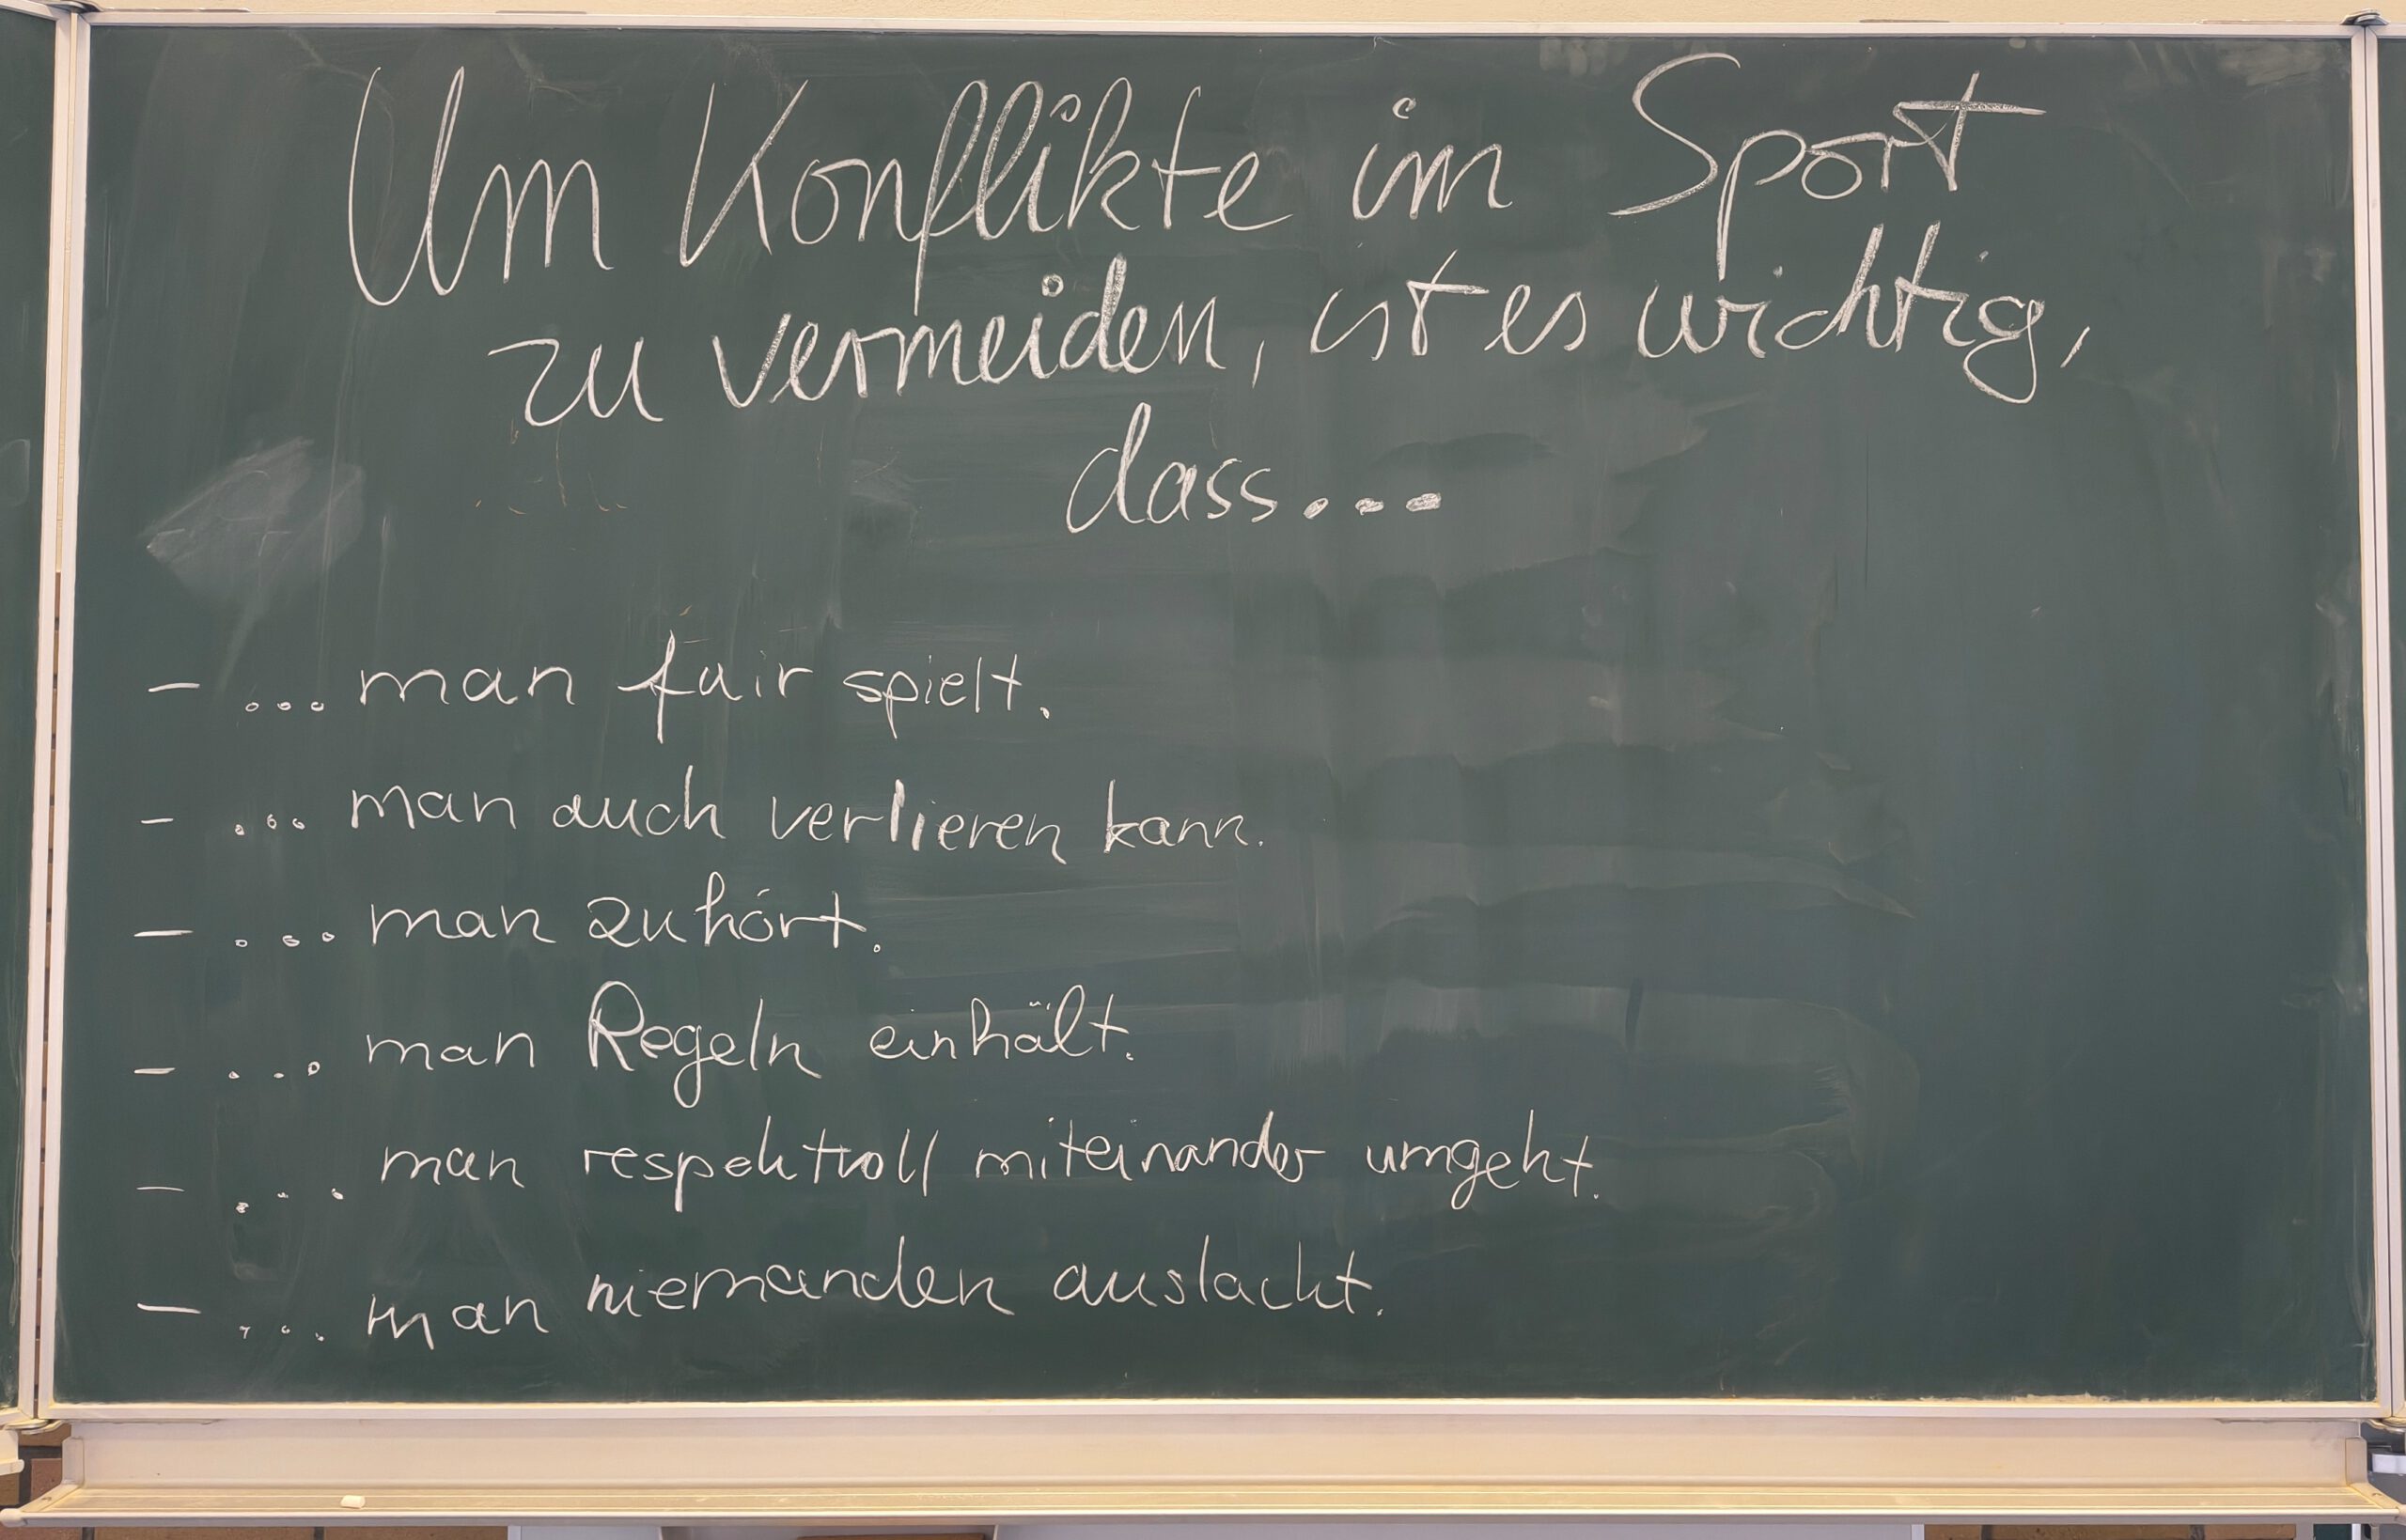 Um Konflikte im Sport
zu vermeiden, ist es wichtig,
dass...
- ... man fair spielt.
- ... man auch verlieren kann.
- ... man zuhört.
- ... man Regeln einhält.
- ... man respektvoll miteinander umgeht.
- ... man niemanden auslacht.